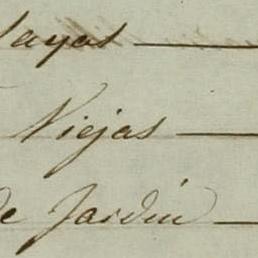 Sayas
Viejas
de Jardin